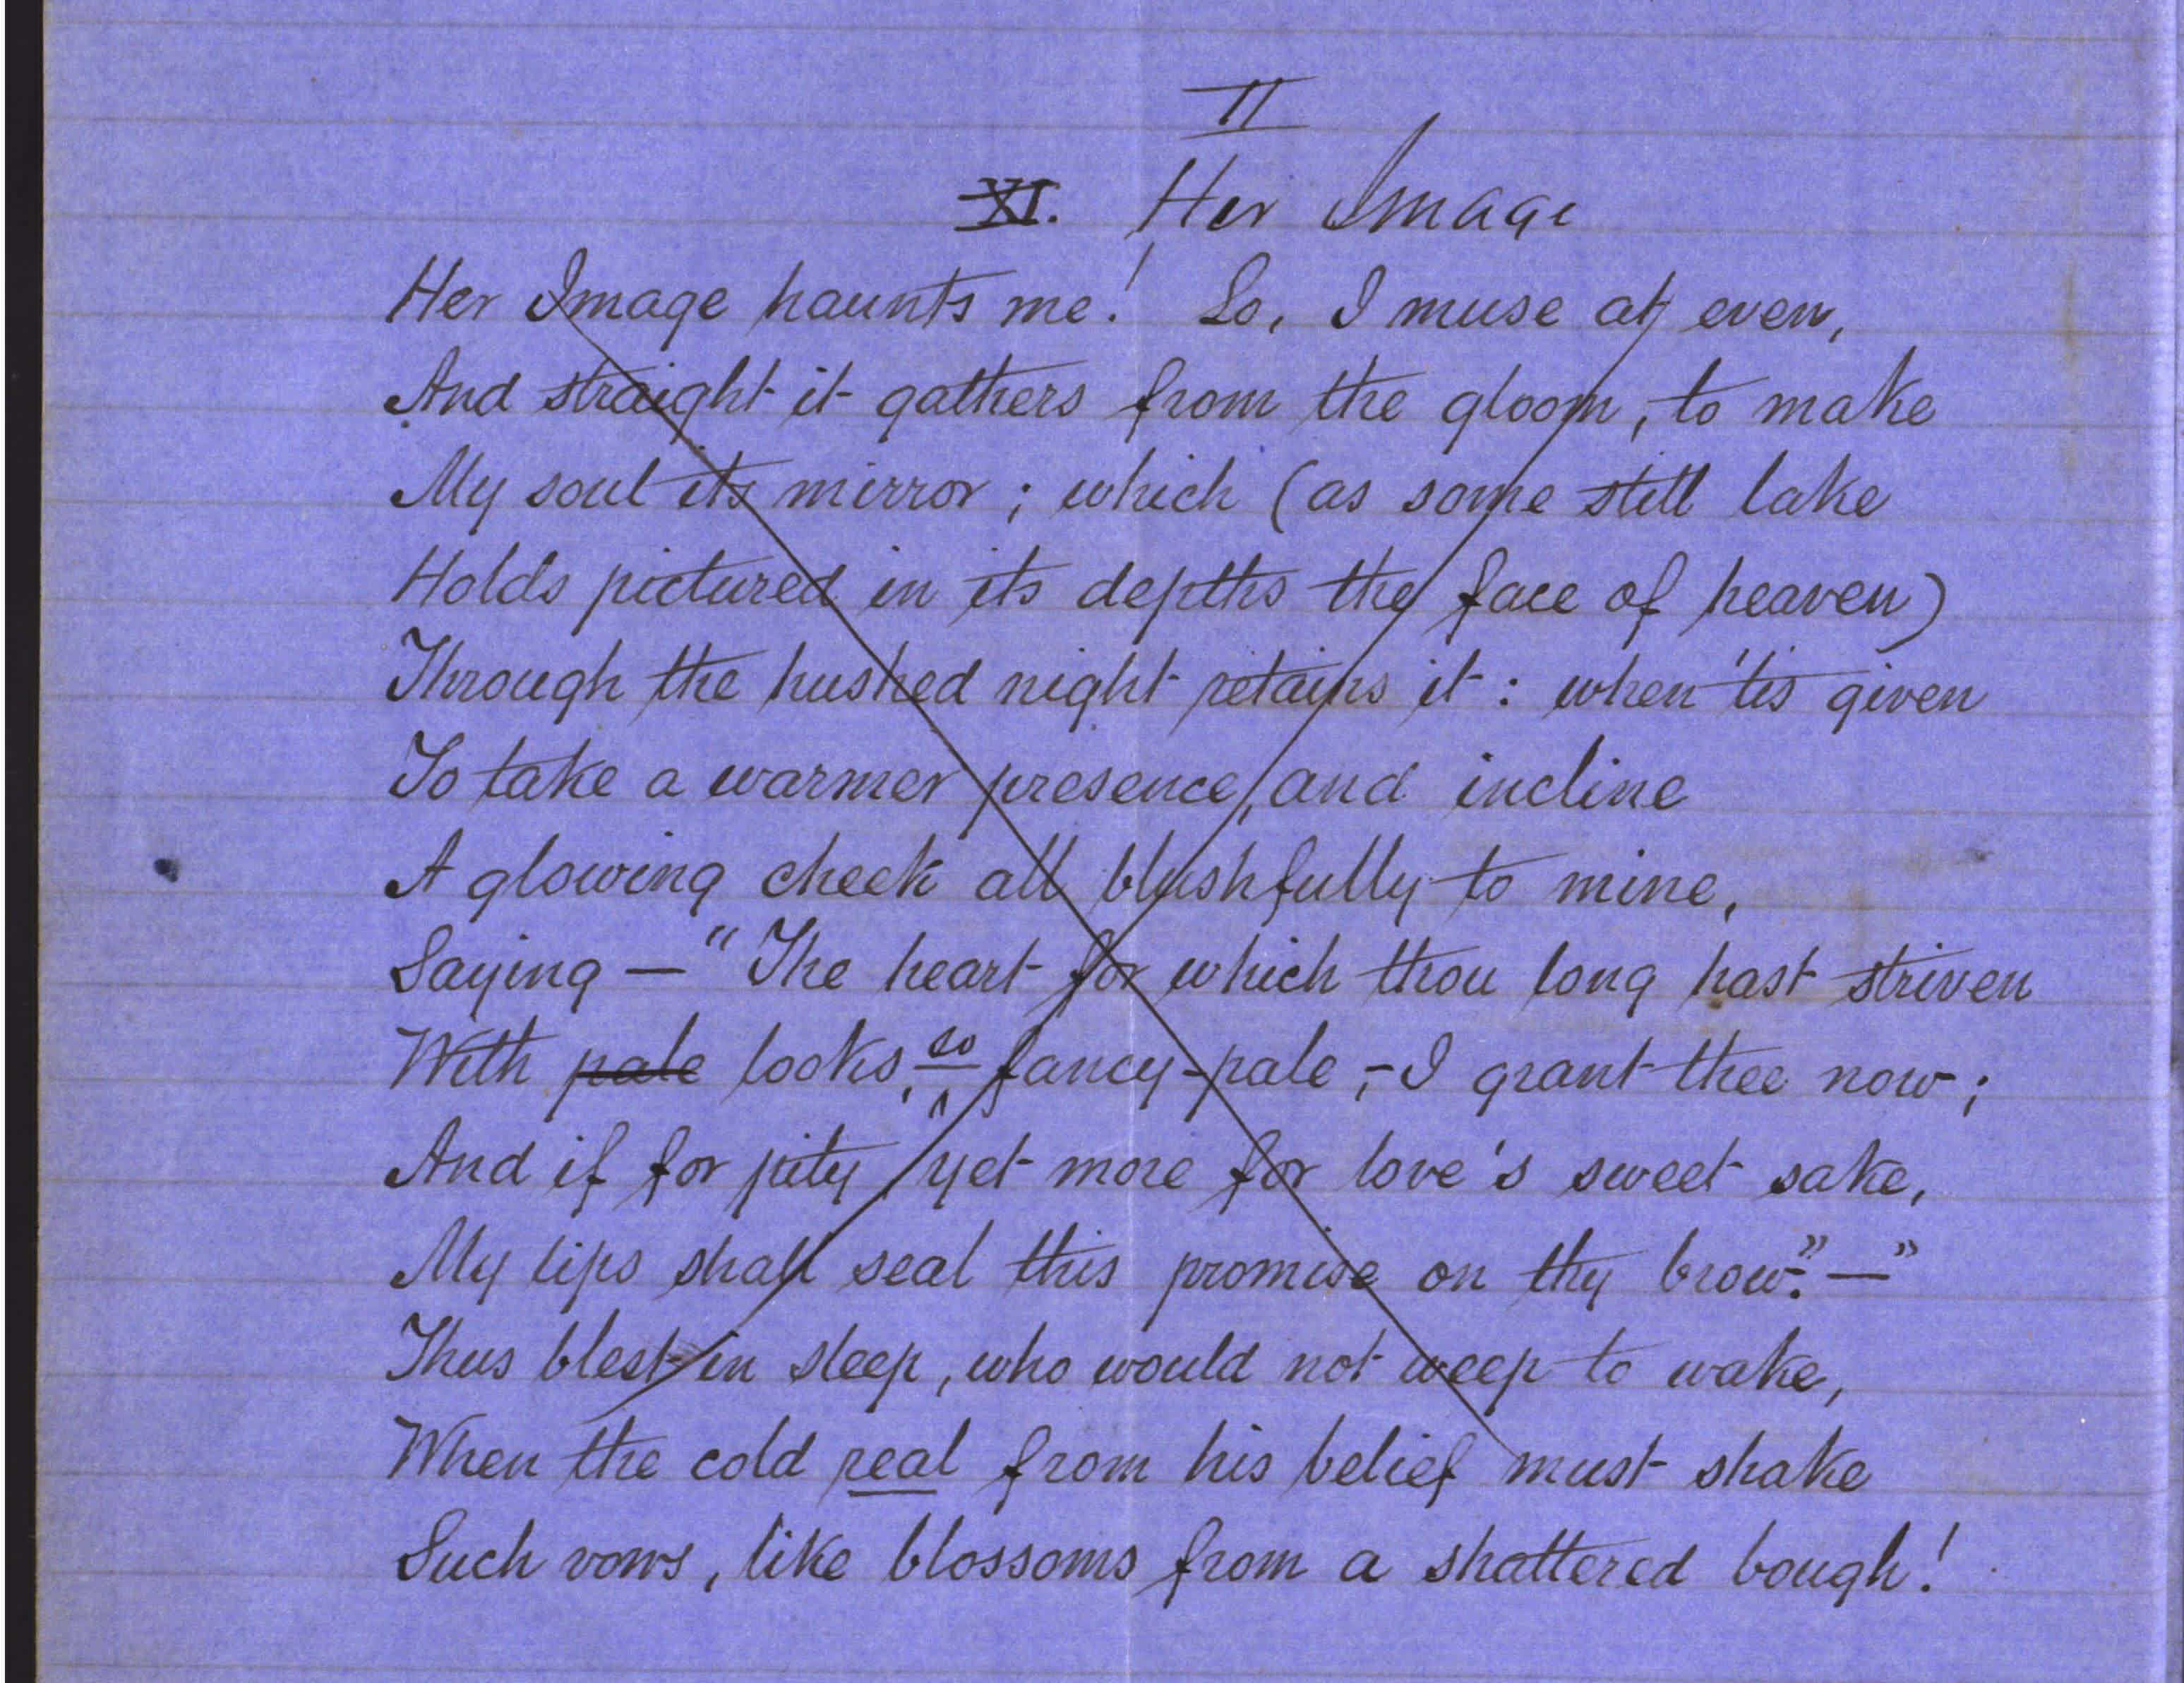 II
XI. Her Image
Her Image haunts me! Lo, I muse at even,
And straight it gathers from the gloom, to make
My soul its mirror; which (as some still lake
Holds pictured in its depths the face of heaven)
Through the hushed night retains it: when 'tis given
To take a warmer presence, and incline
A glowing cheek all blushfully to mine,
Saying — "The heart for which thou long hast striven
With pale looks, so fancy-pale, – I grant thee now;
And if for pity, yet more for love's sweet sake,
My lips shall seal this promise on thy brow." — "
Thus blest in sleep, who would not weep to wake,
When the cold real from his belief must shake
Such vows, like blossoms from a shattered bough!